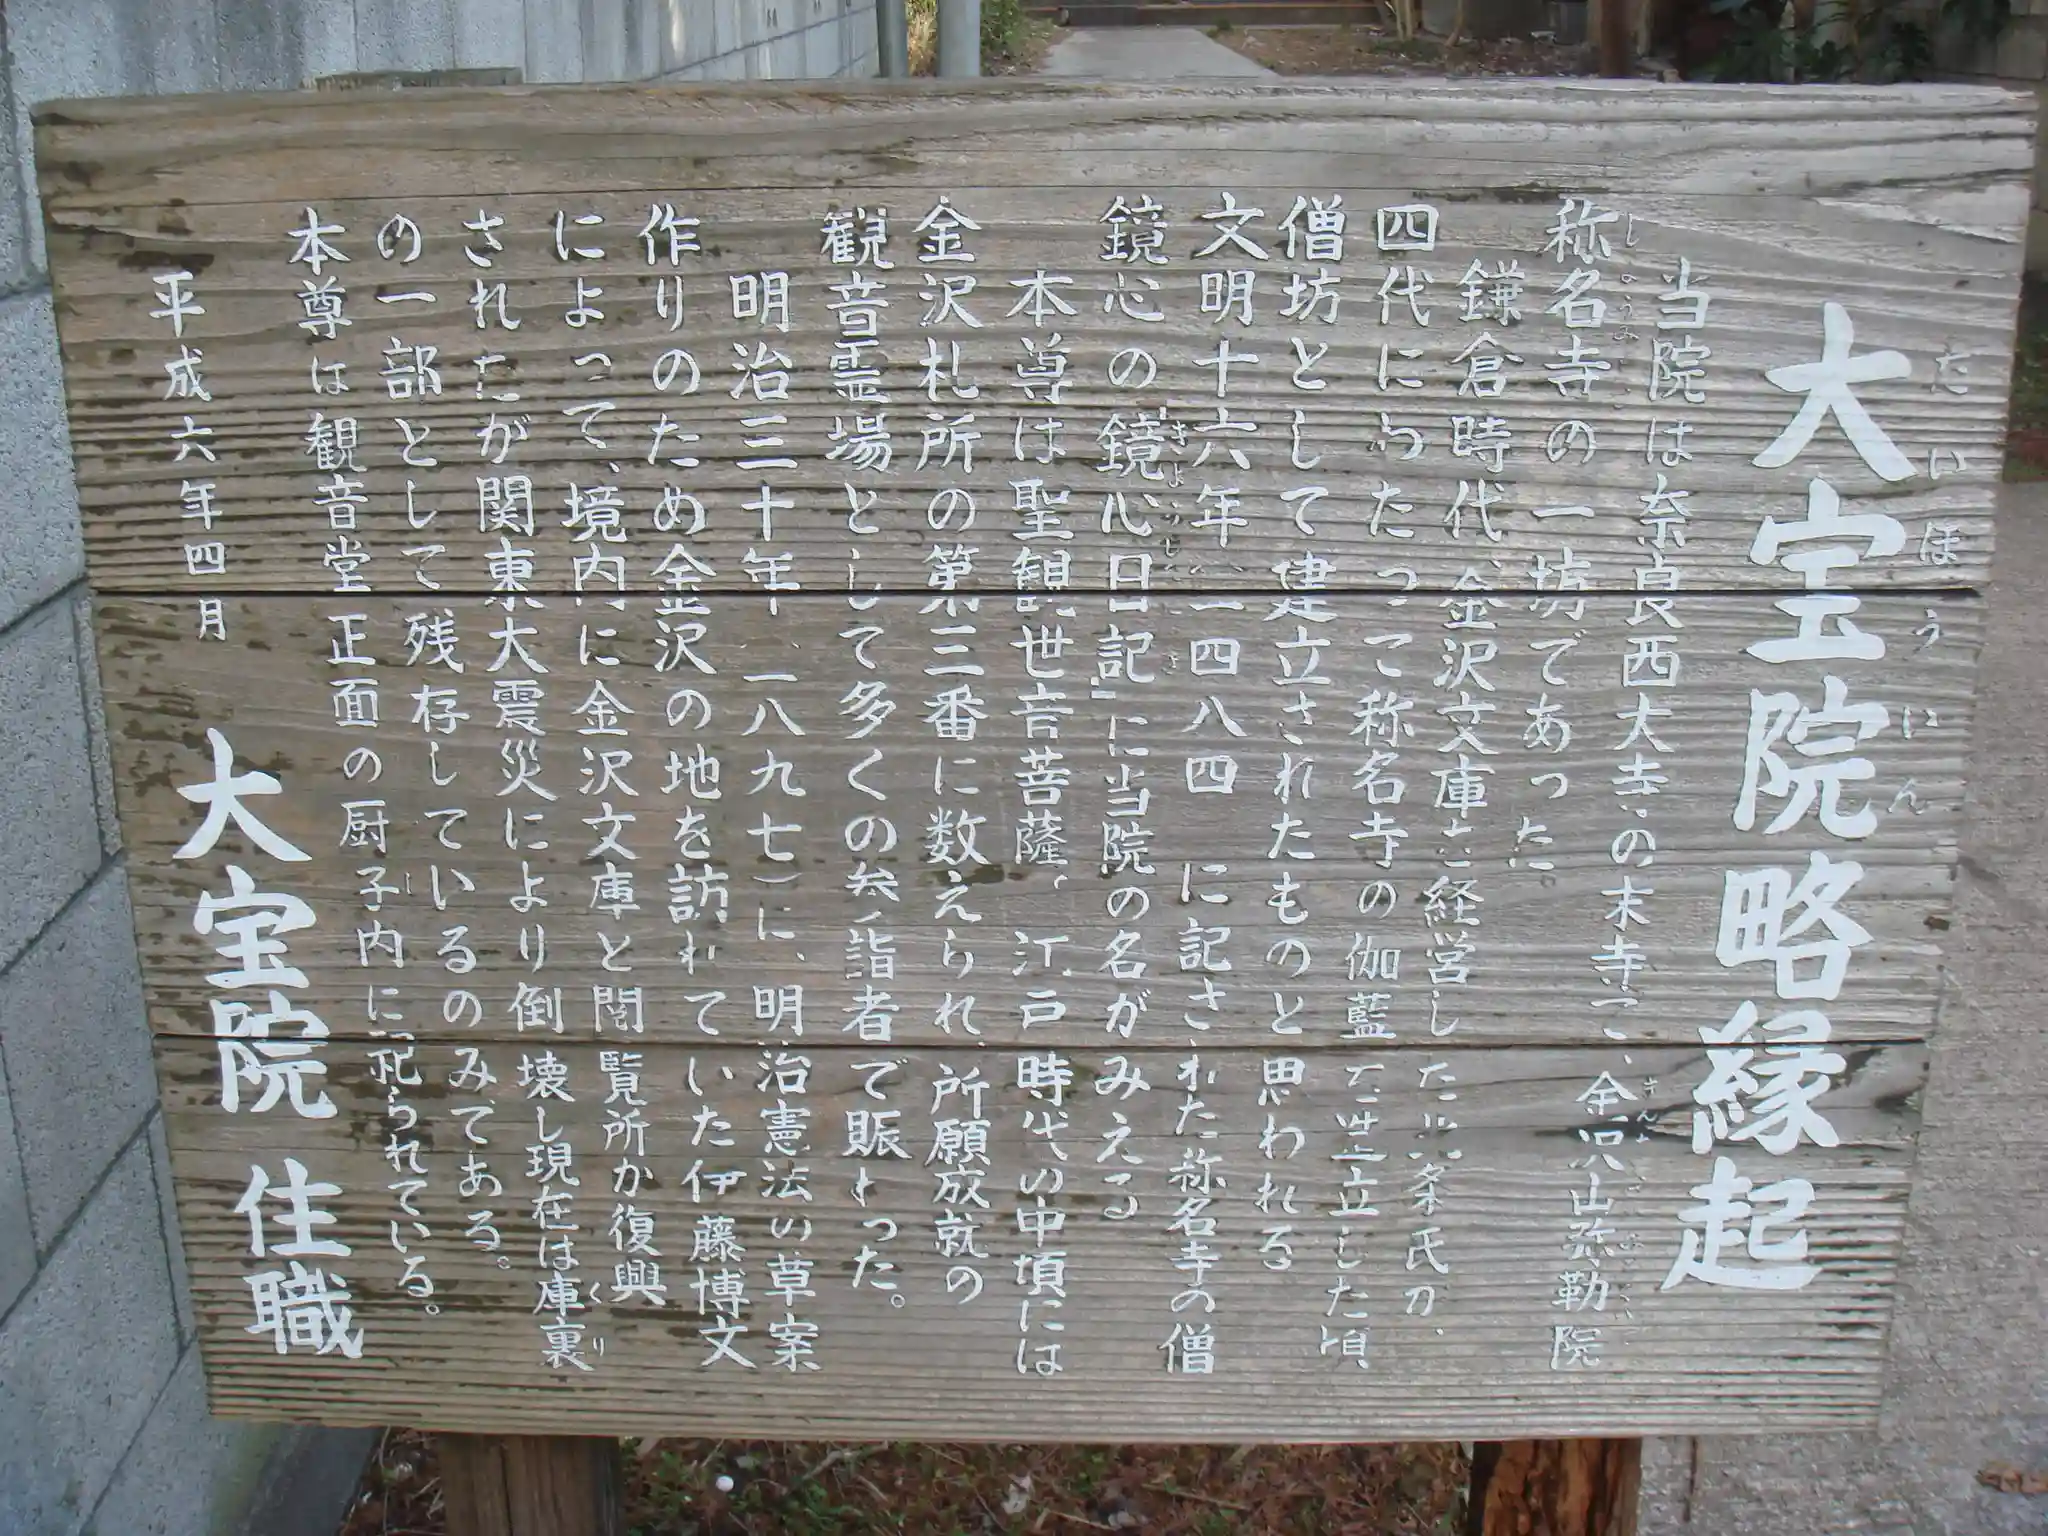 大宝院略縁起
だいほういん
当院は奈良西大寺の末寺で、金沢山弥勒院
称名寺の一坊であった。
鎌倉時代、金沢文庫を経営した北条氏が、
四代にわたって称名寺の伽藍を造立した頃、
僧坊として建立されたものと思われる
文明十六年(一四八四)に記された称名寺の僧
鏡心の「鏡心日記」に当院の名がみえる
本尊は聖観世音菩薩、江戸時代の中頃には
金沢札所の第三番に数えられ、所願成就の
観音霊場として多くの参詣者で賑わった。
明治三十年(一八九七)に、明治憲法の草案
作りのため金沢の地を訪れていた伊藤博文
によって、境内に金沢文庫と閲覧所が復興
されたが関東大震災により倒壊し現在は庫裏
の一部として残存しているのみである。
本尊は観音堂正面の厨子内に祀られている。
平成六年四月
大宝院 住職